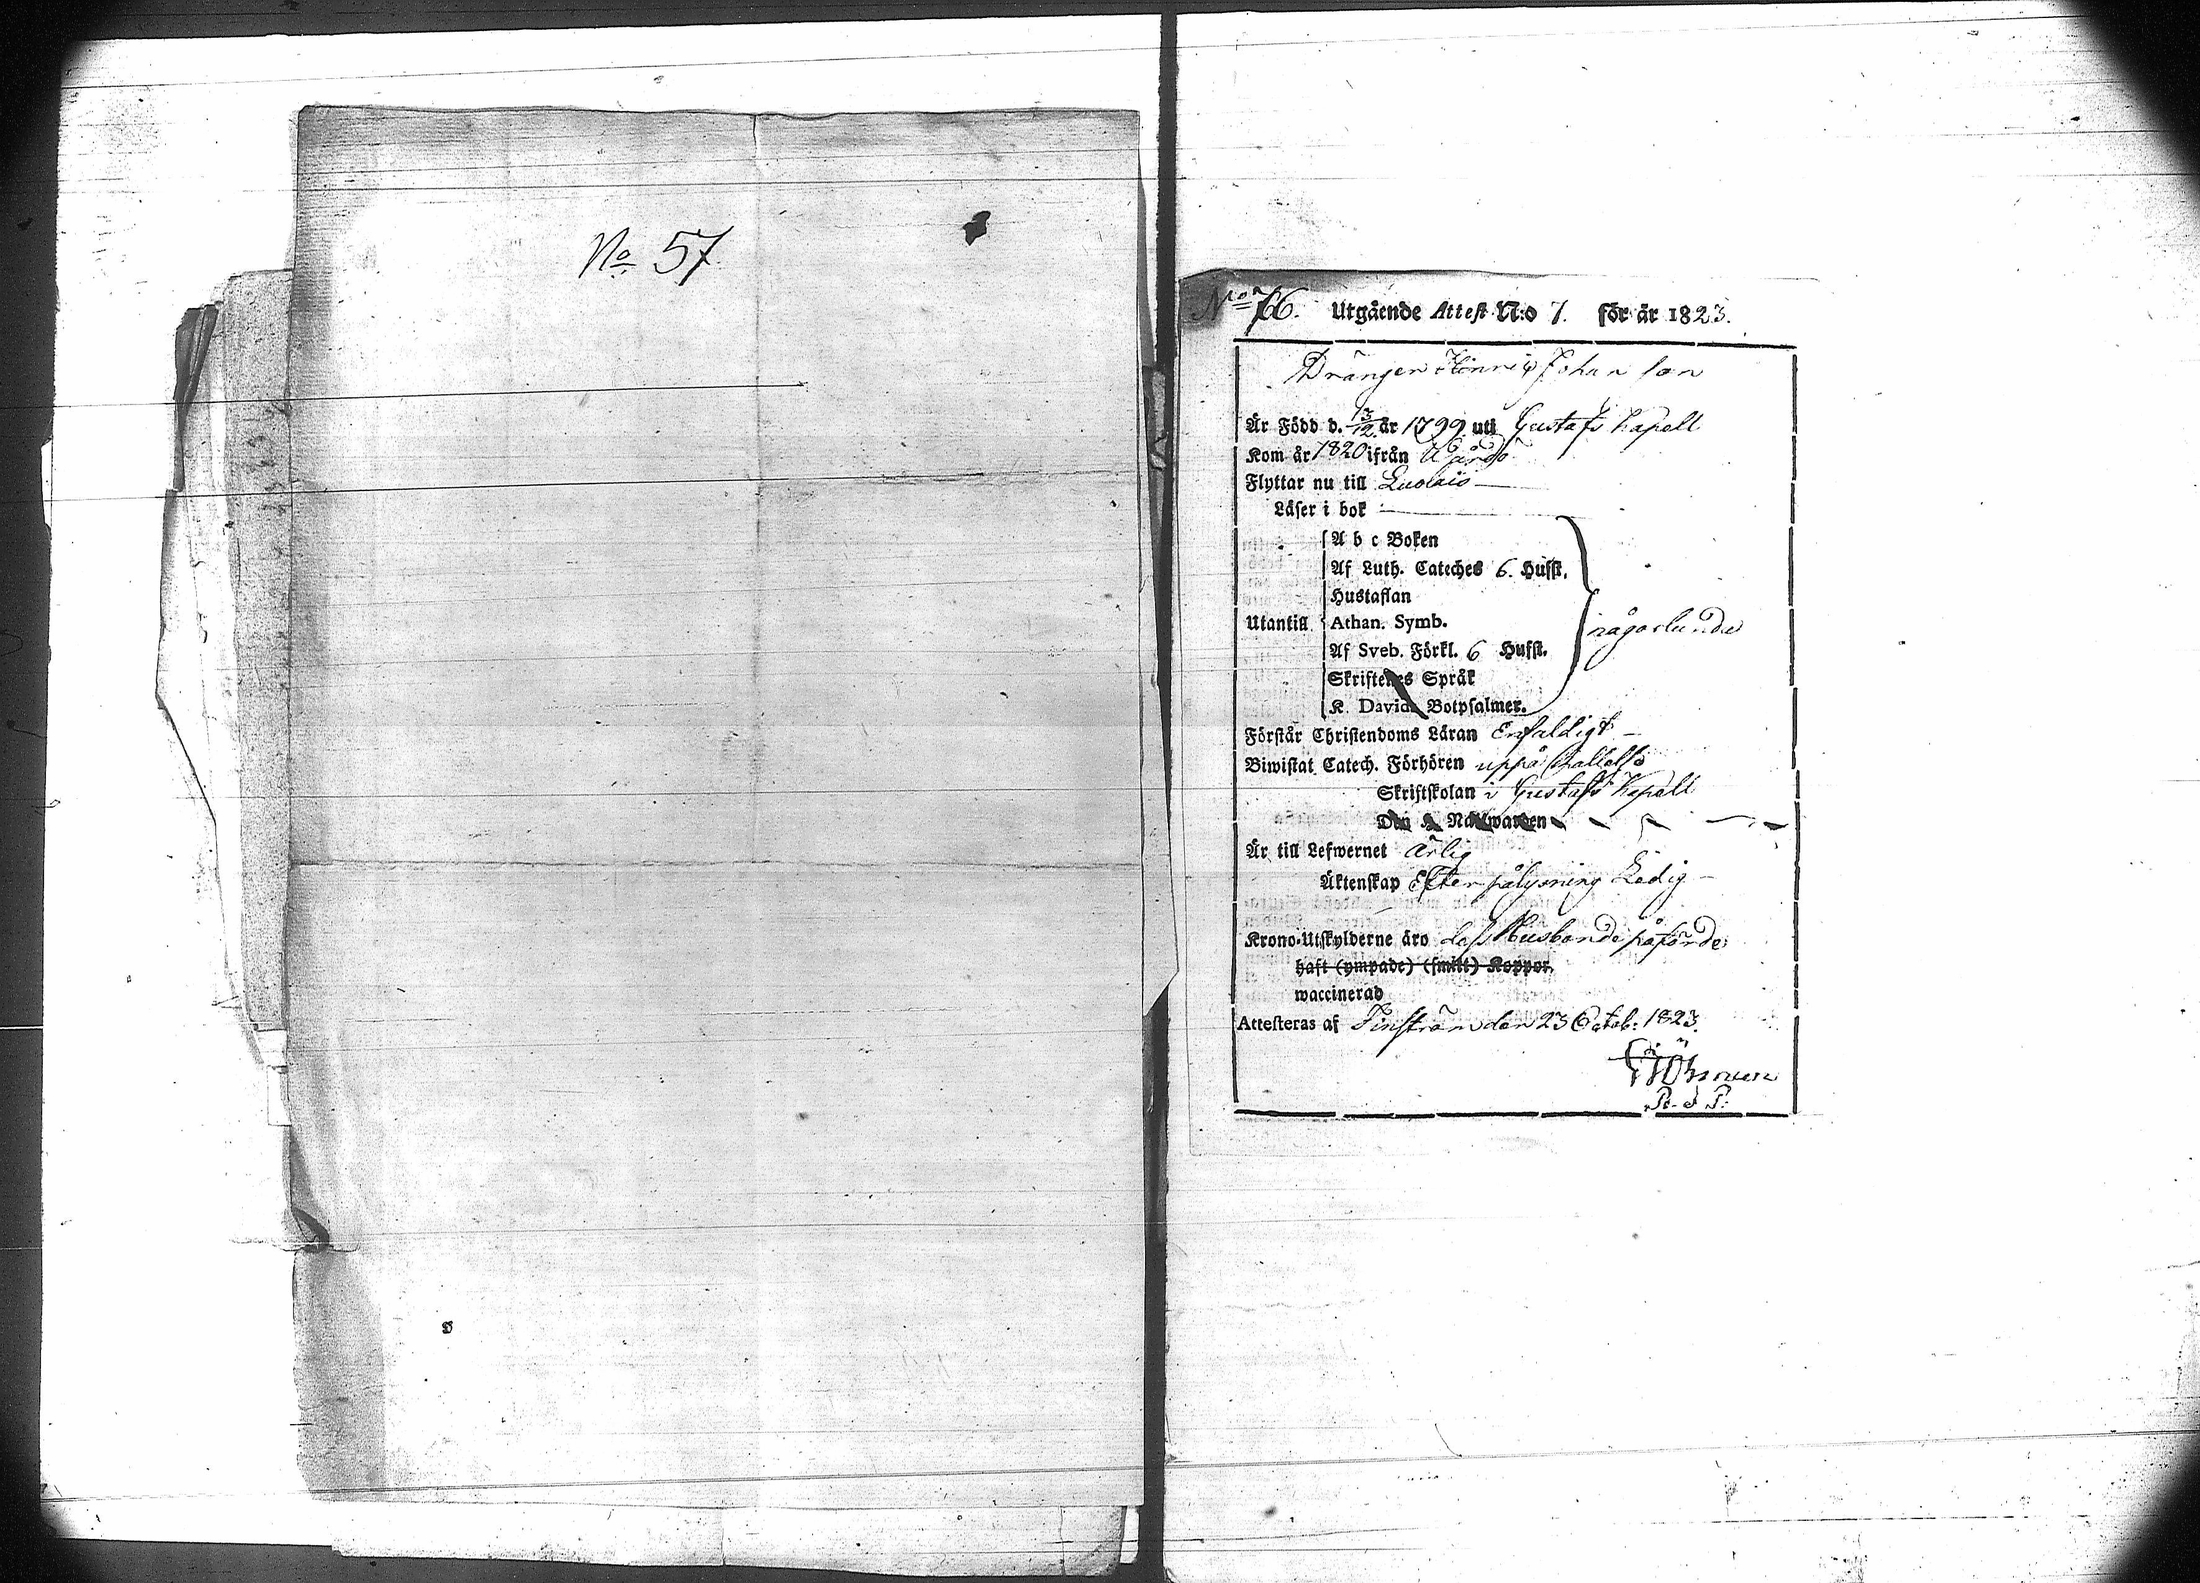 No 57
No 76. Utgående Attest N:o 7. för år 1823.
Drängen Hinric Johanson
Är Född d. 13/12 år 1799 uti Gustafs Kapell
Kom år 1820 ifrån Wårdö
Flyttar nu till
Läser i bok
A b c Boken
Af Luth. Cateches 6. Hufst.
Hustaflan
Utantill Athan. Symb. någorlunda
Af Sveb. Förkl. 6 Hufst.
Skriftenes Språk
K. Davids Botpsalmer.
Förstår Christendoms Läran Enfaldigt
Biwistat Catech. Förhören uppå
Skriftskolan i Gustafs Kapell
Den H. Nattwarden
Är till Lefwernet ärlig
Äktenskap Efter pålysning Ledig
Krono-Utskylderne äro dess Husbonde påförde
haft (ympade) (smitt) Koppor,
waccinerad
Attesteras af Finström den 23 Octob: 1823.